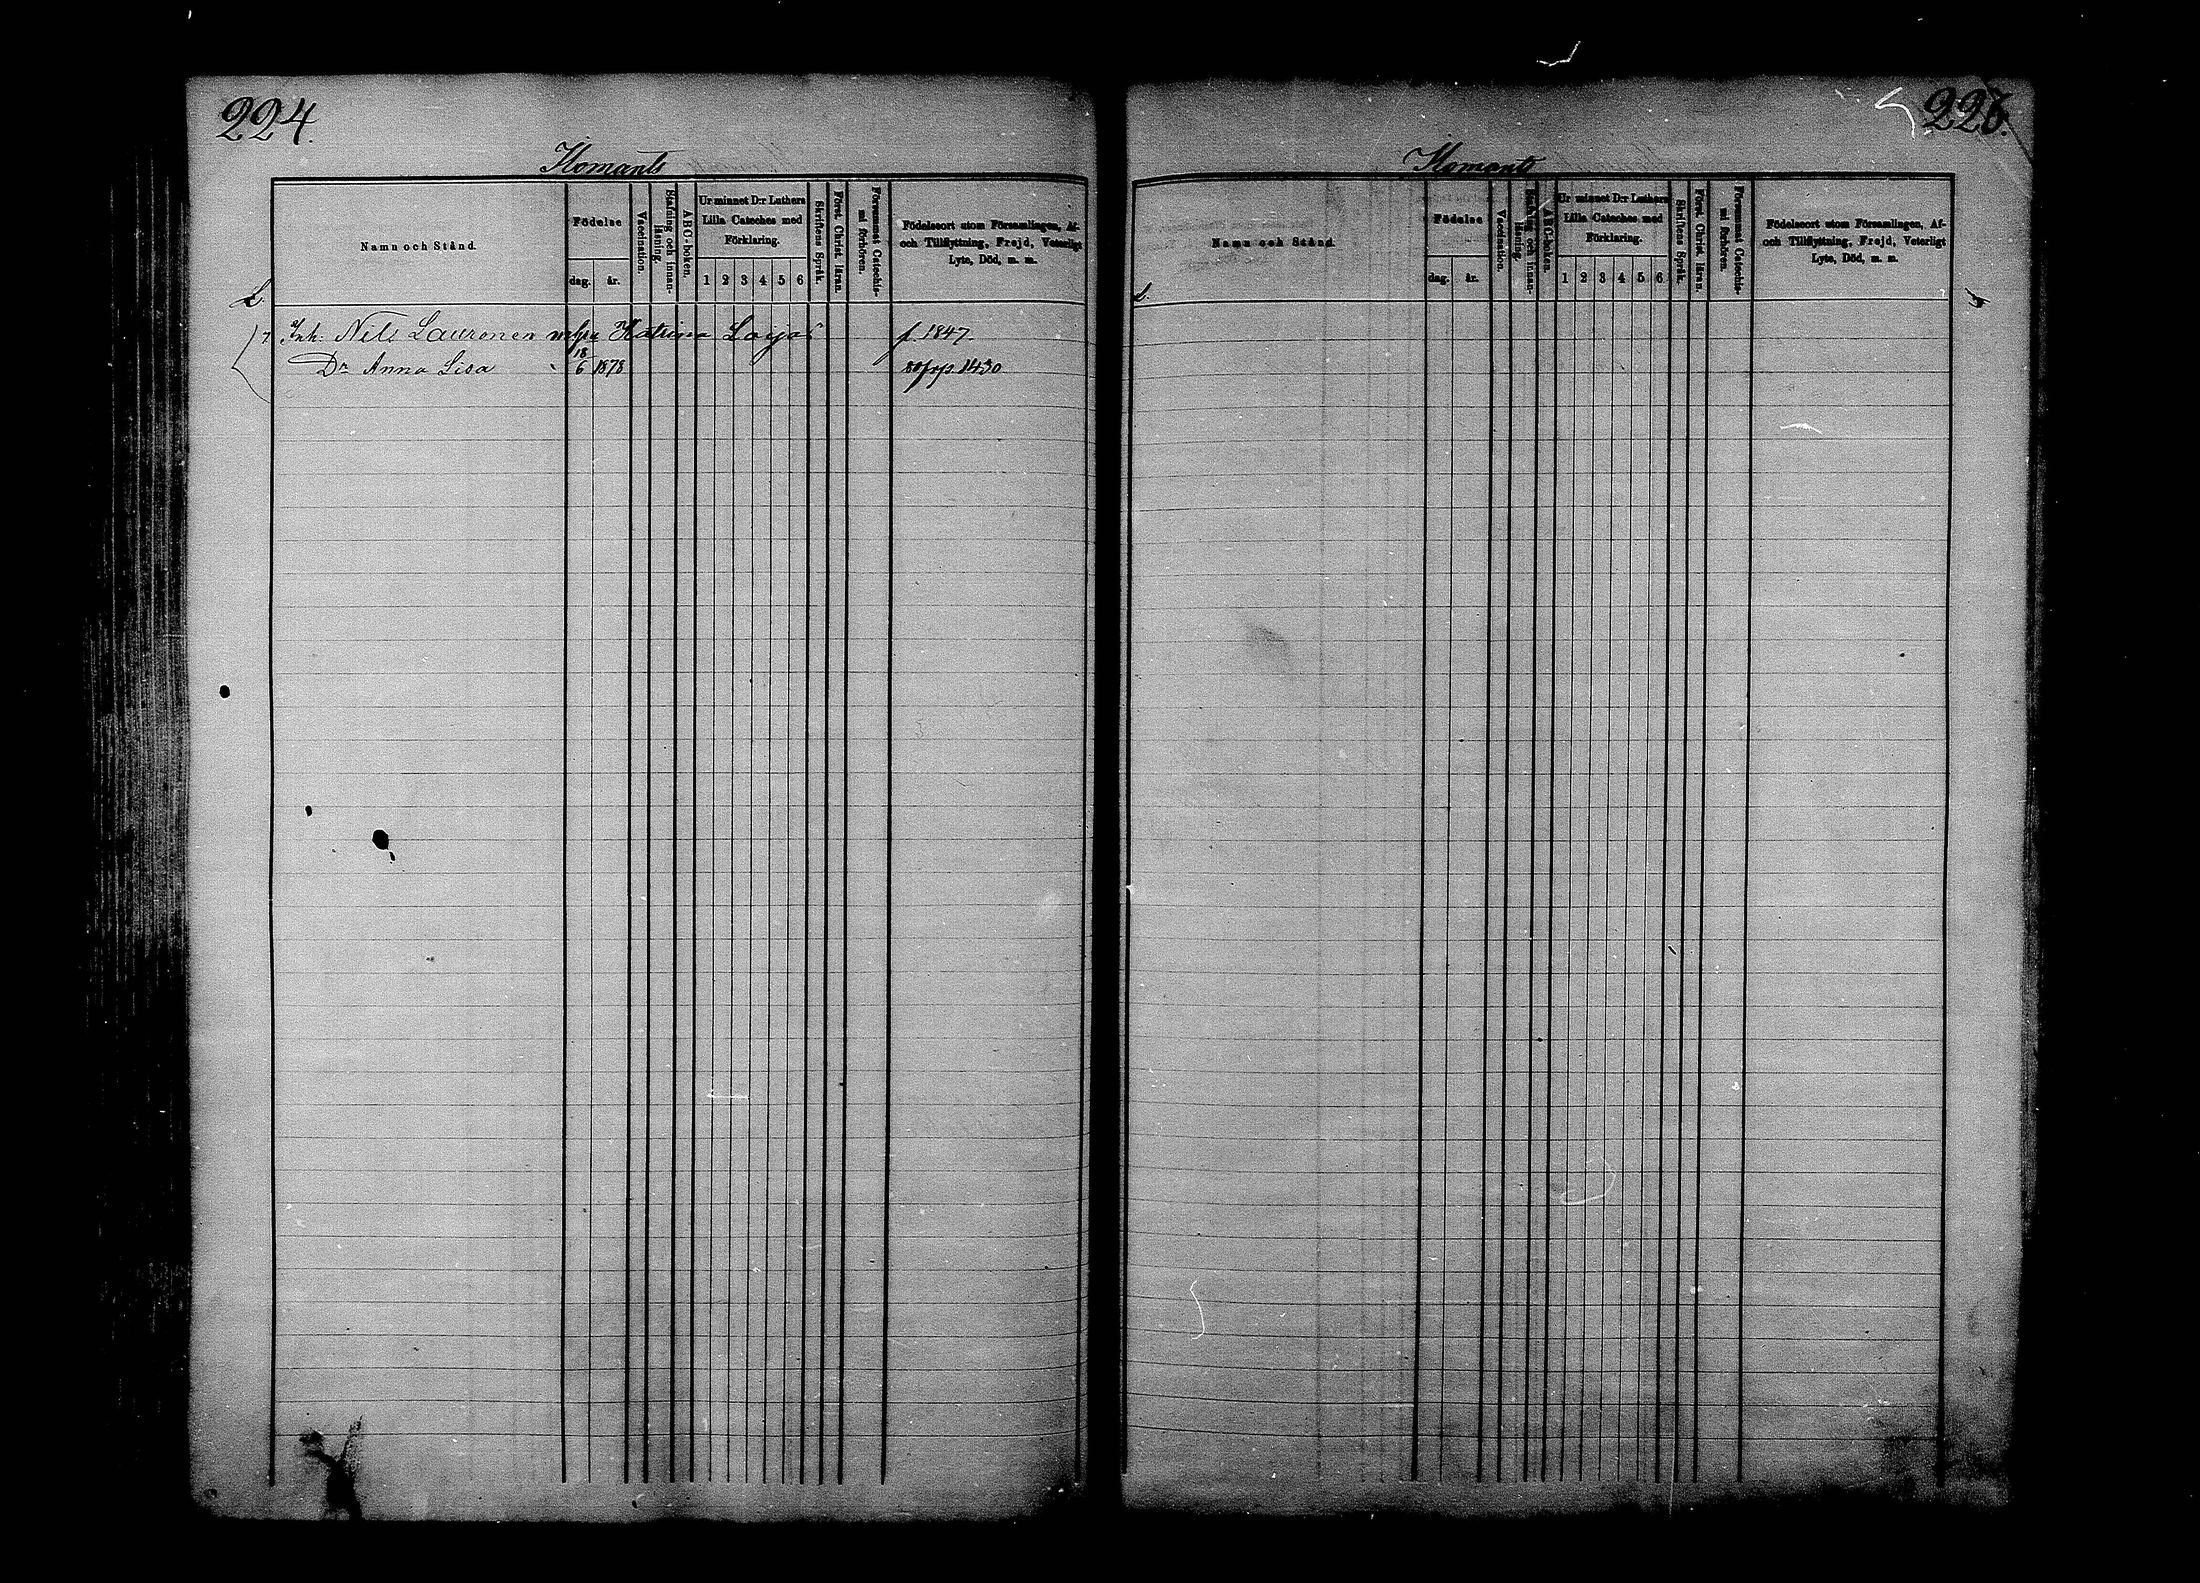 224.
Ilomants
Namn och Stånd.
Födelse
dag. år.
Vaccination.
Stafning och innan-läsning.
ABC-boken.
Ur minnet D:r Luthers
Lilla Cateches med
Förklaring.
1 2 3 4 5 6
Skriftens Språk.
Först. Christ. läran.
Försummat Catechis-
mi förhören.
Födelseort utom Församlingen, Af-
och Tillflyttning, Frejd, Veterligt
Lyte, Död, m. m.
L.
7. Inh: Nils Lauronen Katrina f. 1847.
18
Dr Anna Lisa 6 1878 1430
Ilomants
Namn och Stånd.
Födelse
dag. år.
Vaccination.
Stafning och innan-läsning.
ABC-boken.
Ur minnet D:r Luthers
Lilla Cateches med
Förklaring.
1 2 3 4 5 6
Skriftens Språk.
Först. Christ. läran.
Försummat Catechis-
mi förhören.
Födelseort utom Församlingen, Af-
och Tillflyttning, Frejd, Veterligt
Lyte, Död, m. m.
L.